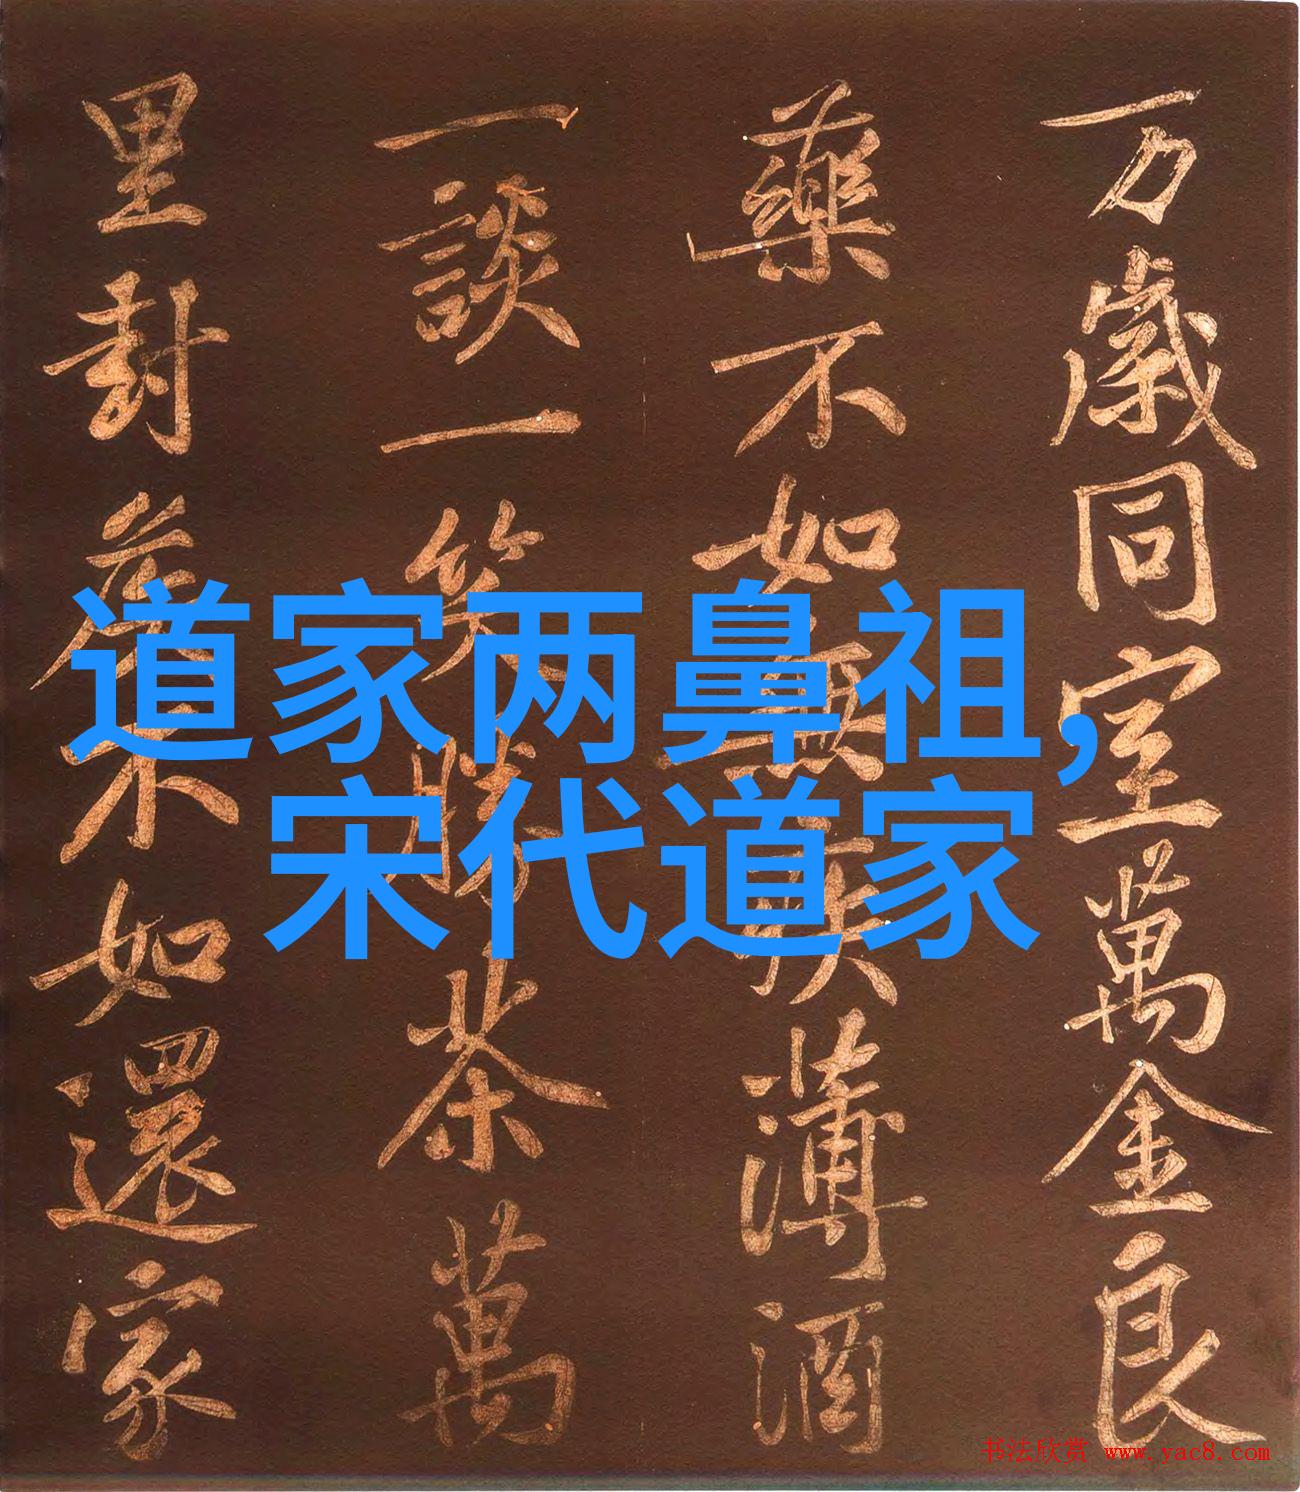 道家两鼻祖,
宋代道家
万歲同室萬金良
藥不如無疾薄酒
一談一笑勝茶萬
里封侯不如還家
书法欣赏 www.yac8.com